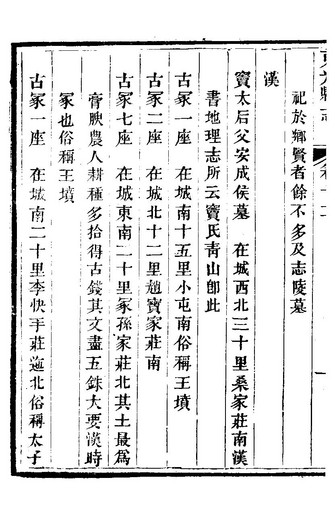 祀於鄉賢者餘不多及志陵墓
漢
竇太后父安成侯墓 在城西北三十里桑家莊南漢
書地理志所云竇氏青山卽此
古冢一座 在城南十五里小屯南俗稱王墳
古冢二座 在城北十二里趙寶家莊南
古冢七座 在城東南二十里冢孫家莊北其土最爲
膏腴農人耕種多拾得古錢其文盡五銖大要漢時
冢也俗稱王墳
古冢一座 在城南二十里李快手莊迤北俗稱太子